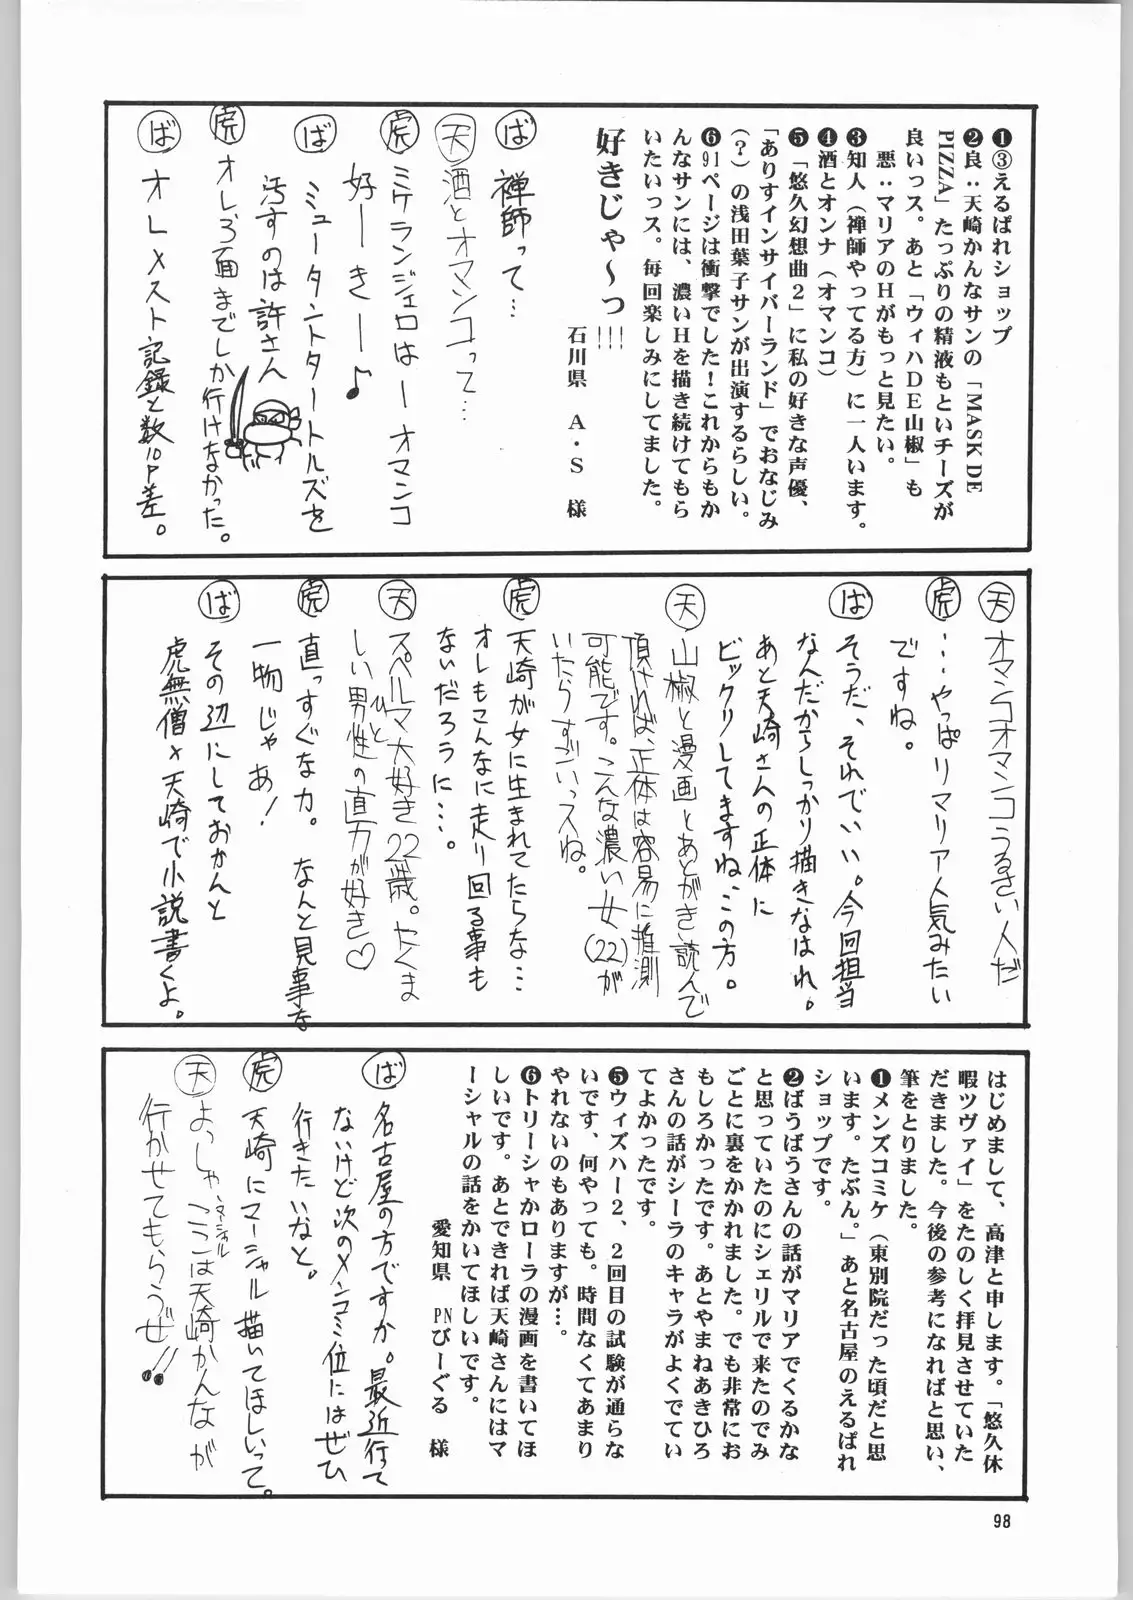 ❶③えるぱれショップ
❷良：天崎かんなサンの「MASK DE
PIZZA」たっぷりの精液もといチーズが
良いっス。あと「ウィハDE山椒」も
悪：マリアのHがもっと見たい。
❸知人（禅師やってる方）に一人います。
❹酒とオンナ（オマンコ）
❺「悠久幻想曲2」に私の好きな声優、
「ありすインサイバーランド」でおなじみ
（？）の浅田葉子サンが出演するらしい。
❻91ページは衝撃でした！これからもか
んなサンには、濃いHを描き続けてもら
いたいっス。毎回楽しみにしてました。
好きじゃ〜っ!!!
石川県　A・S　様
ば 禅師って…
天 酒とオマンコって…
虎 ミケランジェロはーオマンコ
好ーきー♪
ば ミュータントタートルズを
汚すのは許さん
虎 オレ3面までしか行けなかった。
ば オレメスト記録と数10P差。
天 オマンコオマンコうるさい人だ
虎 …やっぱリマリア人気みたい
ですね。
ば そうだ、それでいい。今回担当
なんだからしっかり描きなはれ。
あと天崎さんの正体に
ビックリしてますね、この方。
天 山椒と漫画とあとがき読んで
頂ければ、正体は容易に推測
可能です。こんな濃い女(22)が
いたらすごいっスね。
虎 天崎が女に生まれてたらな…
オレもこんなに走り回る事も
ないだろうに…。
天 スペルマ大好き22歳。たくま
しい男性の直刀が好き♡
虎 直っすぐな刀。なんと見事な
一物じゃあ！
ば その辺にしておかんと
虎無僧×天崎で小説書くよ。
はじめまして、高津と申します。「悠久休
暇ツヴァイ」をたのしく拝見させていた
だきました。今後の参考になればと思い、
筆をとりました。
❶メンズコミケ（東別院だった頃だと思
います。たぶん。）あと名古屋のえるぱれ
ショップです。
❷ばうばうさんの話がマリアでくるかな
と思っていたのにシェリルで来たのでみ
ごとに裏をかかれました。でも非常にお
もしろかったです。あとやまねあきひろ
さんの話がシーラのキャラがよくでてい
てよかったです。
❺ウィズハー2、2回目の試験が通らな
いです、何やっても。時間なくてあまり
やれないのもありますが…。
❻トリーシャかローラの漫画を書いてほ
しいです。あとできれば天崎さんにはマ
ーシャルの話をかいてほしいです。
愛知県　PNびーぐる　様
ば 名古屋の方ですか。最近行って
ないけど次のメンコミ位にはぜひ
行きたいなと。
虎 天崎にマーシャル描いてほしいって。
天 よっしゃ、ここは天崎かんなが
行かせてもらうぜ!!
98